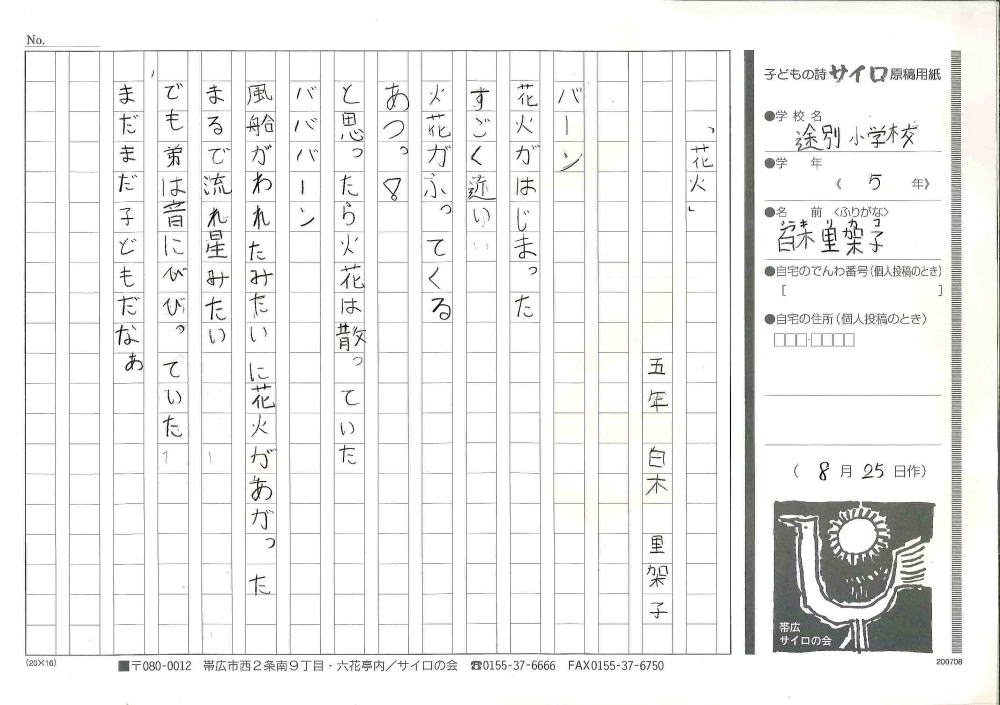 No.
「花火」
五年 白木 里架子
バーン
花火がはじまった
すごく近い
火花がふってくる
あつっ!
と思ったら火花は散っていた
ババババーン
風船がわれたみたいに花火があがった
まるで流れ星みたい
でも弟は音にびびっていた
まだまだ子どもだなぁ
(20×16)
子どもの詩サイロ原稿用紙
●学校名
途別小学校
●学 年
《 5 年》
●名 前〈ふりがな〉
シラキ リカコ
白木 里架子
●自宅のでんわ番号(個人投稿のとき)
[ ]
●自宅の住所(個人投稿のとき)
□□□-□□□□
( 8月25日作)
帯広
サイロの会
■〒080-0012 帯広市西2条南9丁目・六花亭内/サイロの会 ☎0155-37-6666 FAX0155-37-6750
200708